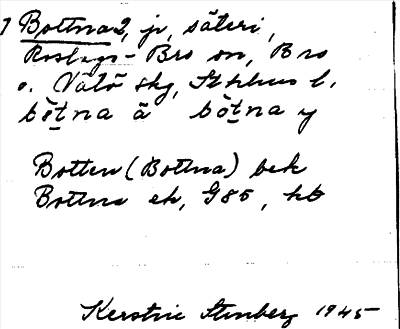 Bottna 2, jr, säteri,
Roslags-Bro sn, Bro
o. Vätö skg, Sthlms l.
bòt̠na ä bòt̠na y
Botten (Bottna) bek
Bottna ek, G85, hb
Kerstin Stenberg 1945